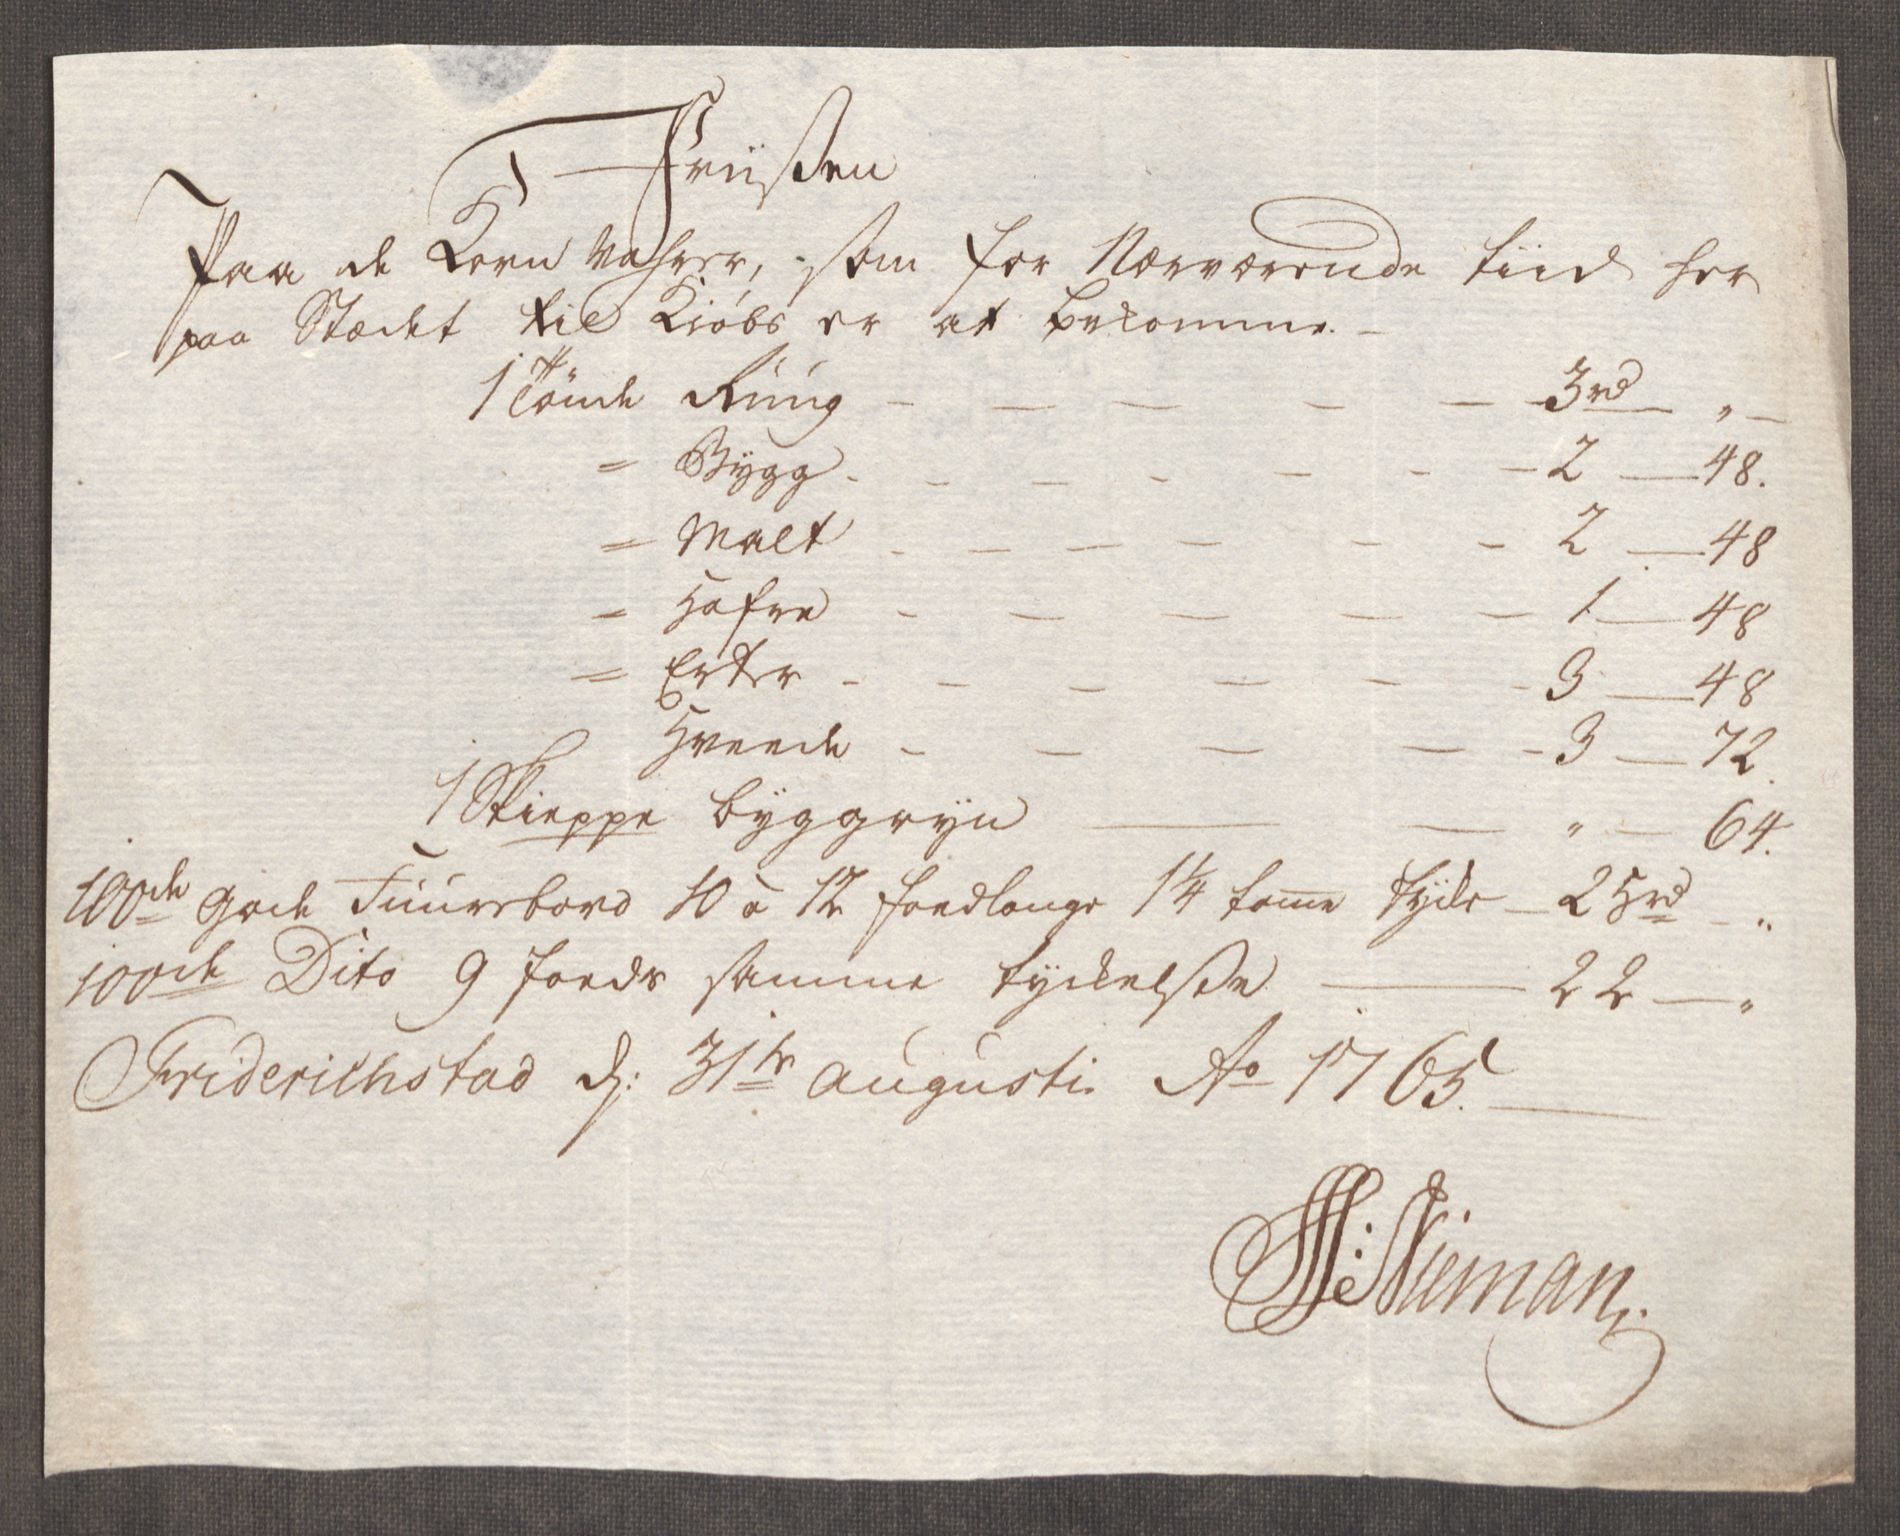 Priißen
Paa de Korn Vahrer, som for Nærværende tiid her
paa Stædet til Kiøbs er at bekomme. —
1 Tønde Rug — — — — — 3 rd „ —
= Bygg . - - - - - - 2 — 48.
= Malt - - - - - - 2 — 48
= Hafre - - - - - 1 — 48
= Erter - - - - - - 3 — 48
Hveede - - - - - 3 — 72.
1 Skieppe byggryn — — „ — 64.
100de gode Fuurebord 10 a 12 foedlange 1¼ tomme tycke — 25 rd — „
100de Dito 9 foeds samme tyckelße — 22 — „
Friderichstad d: 31te augusti Ao 1765. —
Nieman.